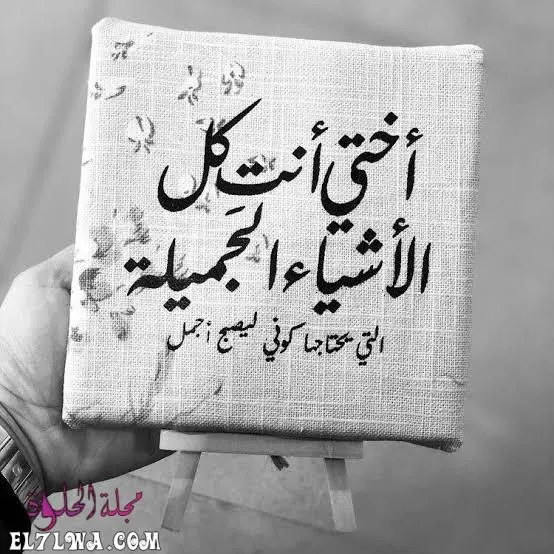 أختي أنتِ كل
الأشياء الجَميلة
التي يحتاجها كوني ليصبح أجمل
مجلة الحلوة
EL7LWA.COM